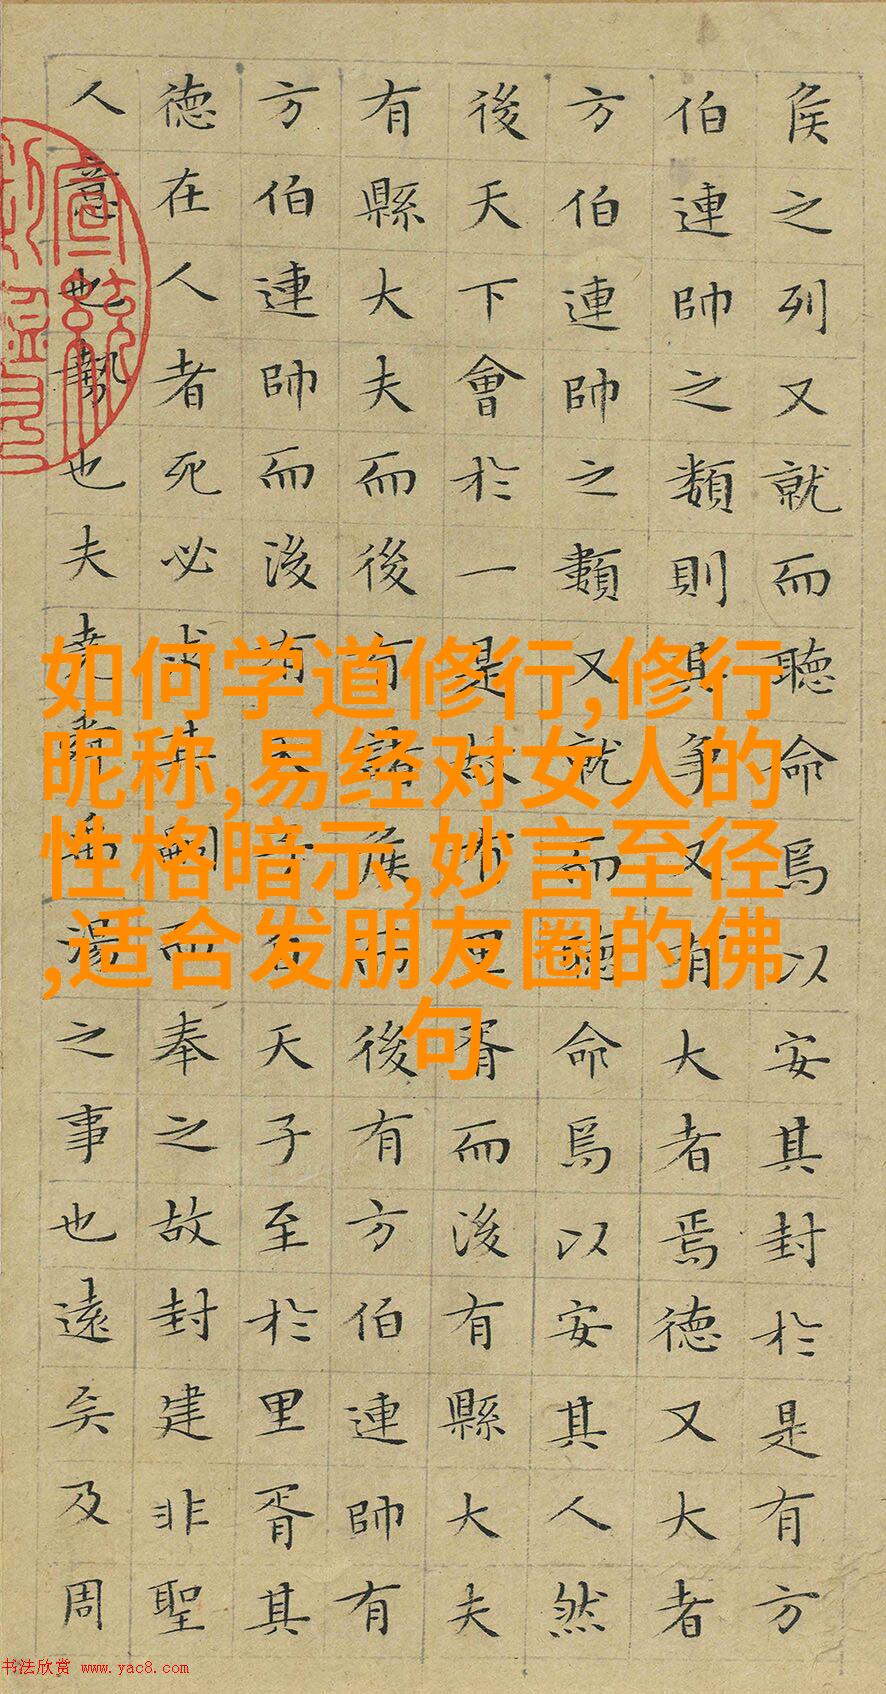 侯之列又就而聽命焉以安其封於是有方
伯連帥之類則其爭又有大者焉德又大者
方伯連帥之類又就而聽命焉以安其人然
後天下會於一是故有里胥而後有縣大夫
有縣大夫而後有諸侯而後有方伯連帥有
方伯連帥而後有天子自天子至於里胥其
德在人者死必求其嗣而奉之故封建非聖
人意也勢也夫堯舜禹湯之事也遠矣及周
如何学道修行,修行
昵称,易经对女人的
性格暗示,妙言至径
,适合发朋友圈的佛
句
书法欣赏 www.yac8.com